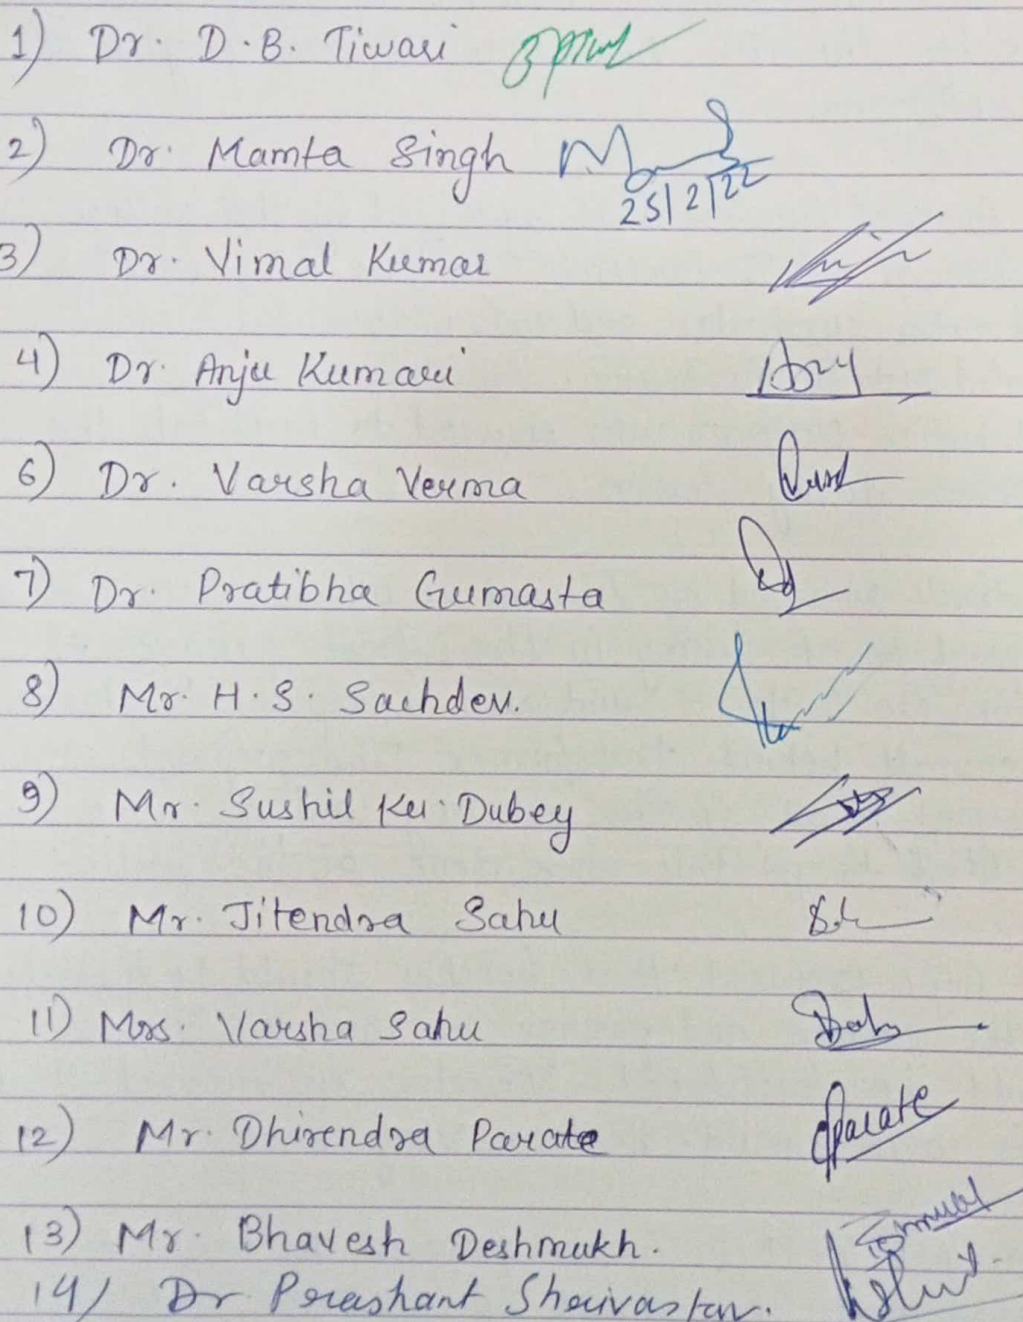 1) Dr. D.B. Tiwari
2) Dr. Mamta Singh
25/2/22
3) Dr. Vimal Kumar
4) Dr. Anju Kumari
6) Dr. Varsha Verma
7) Dr. Pratibha Gumasta
8) Mr. H.S. Sachdev.
9) Mr. Sushil Ku. Dubey
10) Mr. Jitendra Sahu
11) Mrs. Varsha Sahu
12) Mr. Dhirendra Parate Parate
13) Mr. Bhavesh Deshmukh.
14) Dr Prashant Shrivastav.